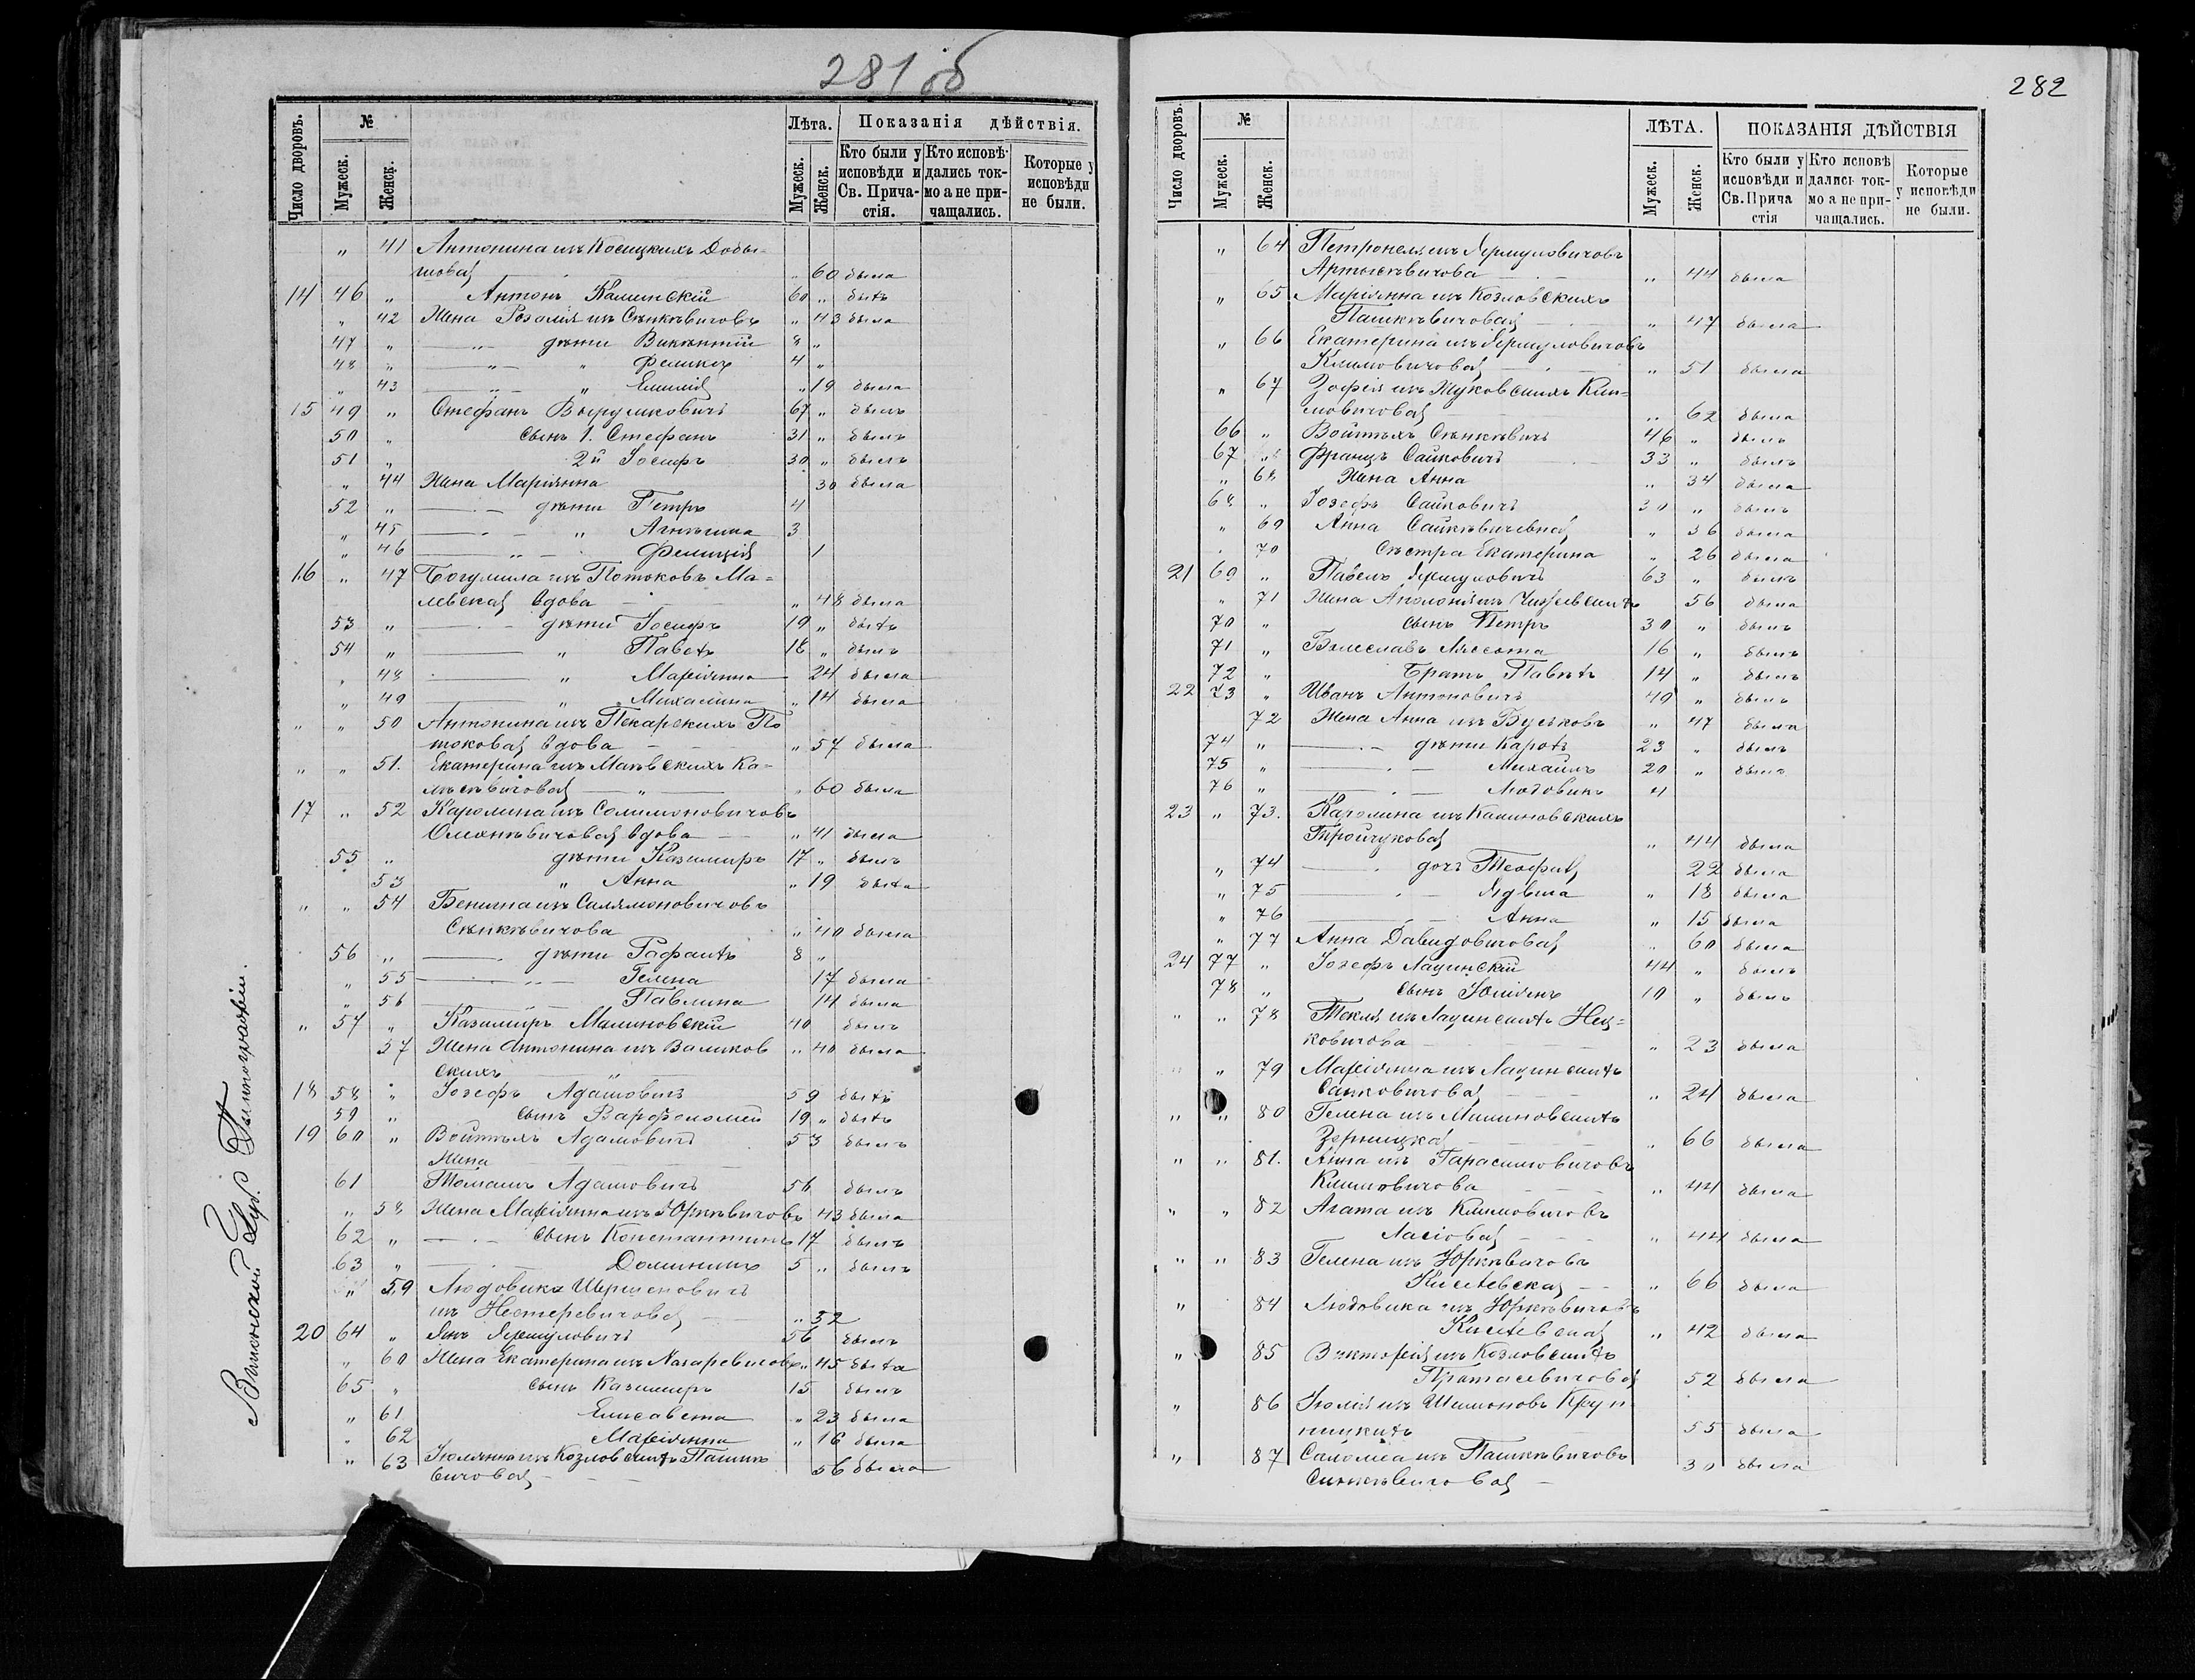 281 об
Число дворовъ. № Лѣта. Показанія дѣйствія.
Мужеск. Женск. Мужеск. Женск. Кто были у исповѣди и Св. Прича-стія. Кто исповѣ-дались ток-мо а не при-чащались. Которые у исповѣди не были.
„ 41 Антонина изъ Косицкихъ Добы-
шовая „ 60 была
14 46 „ Антонъ Калинскій 60 „ былъ
„ 42 Жена Розалія изъ Сѣнкѣвичовъ „ 43 была
47 „ — „ — дѣти Викентій 8 „
48 „ — „ — „ Феликсъ 4 „
„ 43 — „ — „ Емилія „ 19 была
15 49 „ Стефанъ 67 „ былъ
50 „ сынъ 1. Стефанъ 31 „ былъ
51 „ 2й Іосифъ 30 „ былъ
„ 44 Жена Маріянна 30 была
52 „ — дѣти Петръ 4
„ 45 — „ 3
„ 46 — „ — Фелиція 1
16 „ 47 Богумила изъ Потоковъ Ма-
левская вдова „ 48 была
53 „ — дѣти Іосифъ 19 „ былъ
54 „ — „ Павелъ 18 „ былъ
„ 48 — „ Маріянна 24 была
„ 49 — „ Михалина „ 14 была
„ „ 50 Антонина изъ Пекарскихъ По
токовая вдова „ 57 была
„ „ 51. Екатерина изъ Маевскихъ Ка-
„ 60 была
17 „ 52 Каролина изъ Салимоновичовъ
вдова „ 41 была
55 „ дѣти Казимиръ 17 „ былъ
53 „ Анна „ 19 была
„ „ 54 Бенигна изъ Салямоновичовъ
Сѣнкѣвичова „ 40 была
56 „ — дѣти Рафаилъ 8 „
„ 55 — Гелена 17 была
„ 56 Павлина 14 была
„ 57 „ Казимиръ Малиновскій 40 былъ
57 Жена Антонина изъ Валиков
скихъ „ 40 была
18 58 „ Іозефъ Адамовичъ 59 былъ
59 „ сынъ Варфоломей 19 „ былъ
19 60 „ Войтѣхъ Адамовичъ 53 былъ
Жена
61 Томашъ Адамовичъ 56 былъ
„ 58 Жена Маріянна изъ Юркѣвичовъ 43 была
62 „ — сынъ Константинъ 17 былъ
63 „ — Доминикъ 5 „ былъ
„ 59 Людовика
изъ Нестеревичовая „ 52
20 64 „ Янъ Ярмуловичъ 56 былъ
„ 60 Жена Екатерина изъ Назаревичовъ „ 45 была
65 „ сынъ Казимиръ 15 былъ
„ 61 Елисавета „ 23 была
„ 62 Маріянна „ 16 была
„ 63 Юлянна изъ Козловскихъ Пашке
вичовая 56 была
Виленской Губ. Типографіи.
282
Число дворовъ. № ЛѢТА. ПОКАЗАНІЯ ДѢЙСТВІЯ
Мужеск. Женск. Мужеск. Женск. Кто были у исповѣди и Св. Прича стія Кто исповѣ дались ток-мо а не при-чащались. Которые у исповѣди не были.
„ 64 Петронеля изъ Ярмуловичовъ
Артысѣвичова „ 44 была
„ 65 Маріянна изъ Козловскихъ
Пашкѣвичовая „ 47 была
„ 66 Екатерина изъ Ярмуловичовъ
Климовичовая „ 51 была
„ 67 Зофія изъ Жуковскихъ Кли-
мовичовая „ 62 была
66 „ Войтѣхъ Сѣнкѣвичъ 46 „ былъ
67 „ Францъ Сайковичъ 33 „ былъ
„ 68 Жена Анна „ 34 была
68 „ Іозефъ Сайковичъ 30 „ былъ
„ 69 Анна Сайкѣвичевная „ 36 была
70 Сѣстра Екатерина „ 26 была
21 69 „ Павелъ Ярмуловичъ 63 „ былъ
„ 71 Жена Аполонія изъ 56 была
70 „ сынъ Петръ 30 „ былъ
71 „ Болеславъ Лассота 16 „ былъ
72 „ Братъ Павелъ 14 „ былъ
22 73 „ Иванъ Антоновичъ 49 „ былъ
72 Жена Анна изъ Буськовъ „ 47 была
74 „ — дѣти Кароль 23 „ былъ
75 „ — Михаилъ 20 „ былъ
76 „ — Людовикъ 4
23 „ 73. Каролина изъ Калиновскихъ
Тройчуковая „ 44 была
„ 74 — дочь Теофиля 22 была
„ 75 — Ядвига „ 18 была
„ 76 — Анна „ 15 была
„ 77 Анна Давидовичовая „ 60 была
24 77 „ Іозефъ Лацинскій 44 „ былъ
78 „ сынъ Юліянъ 10 „ былъ
„ „ 78 Текля изъ Лацинскихъ Нец-
ковичова „ 23 была
„ „ 79 Маріянна изъ Лацинскихъ
Санковичовая „ 24 была
„ „ 80 Гелена изъ Малиновскихъ
Зерницкая „ 66 была
„ „ 81. Анна изъ Гарасимовичовъ
Климовичова „ 44 была
„ „ 82 Агата изъ Климовичовъ
Ласіовая „ 44 была
„ „ 83 Гелена изъ Юркѣвичовъ
Киселевская „ 66 была
„ 84 Людовика изъ Юркѣвичовъ
Киселевская „ 42 была
„ 85 Викторія изъ Козловскихъ
Пратасевичовая 52 была
„ 86 Юлія изъ Шимоновъ Круп
ницкихъ 55 была
„ 87 Саломеа изъ Пашкѣвичовъ
Синкѣвичовая 30 была